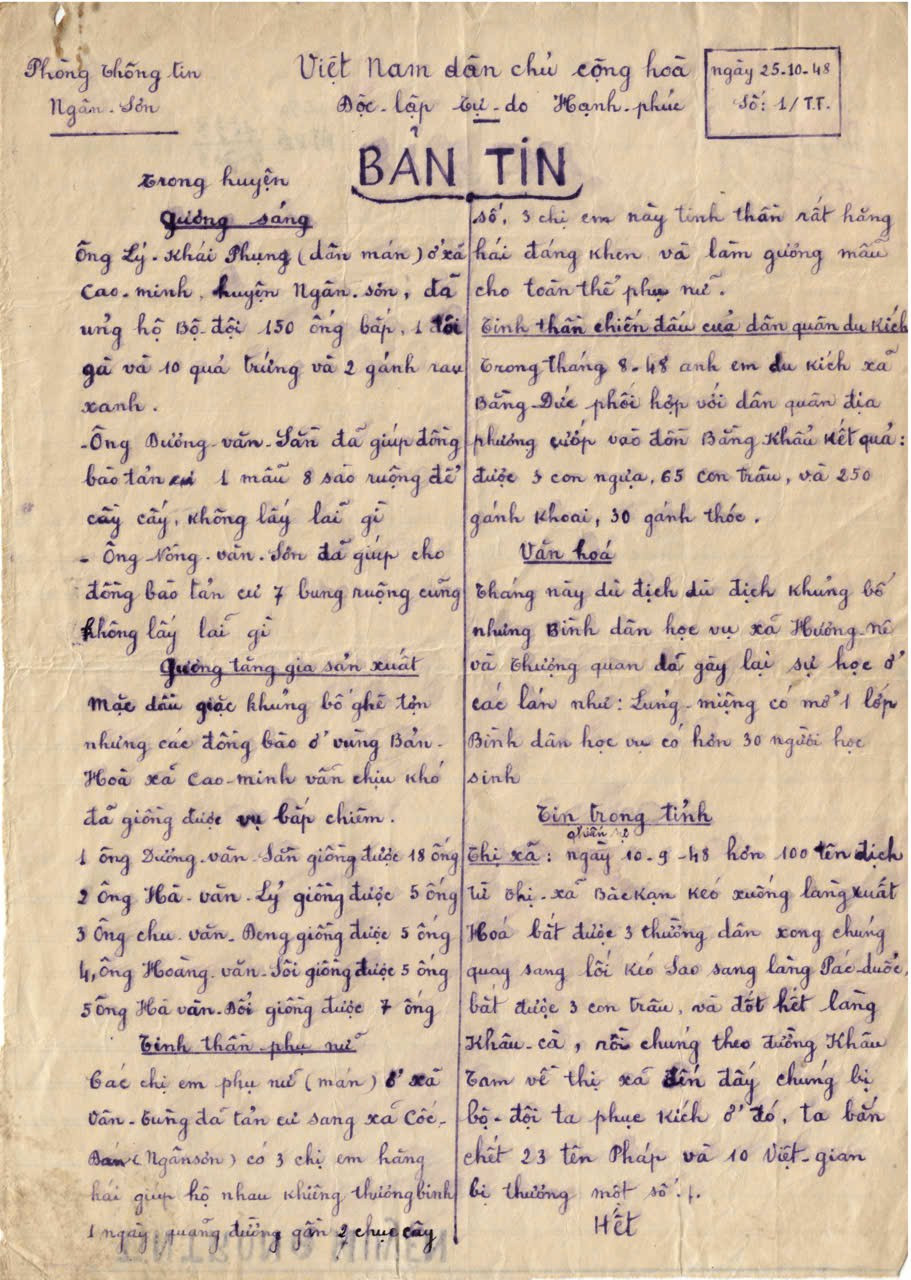 Phòng Thông tin
Ngân-Sơn
Việt Nam dân chủ cộng hoà
Độc-lập Tự-do Hạnh-phúc
ngày 25-10-48
Số: 1/T.T.
BẢN TIN
Trong huyện
Gương sáng
Ông Lý-Khái Phụng (dân mán) ở xã
Cao-minh, huyện Ngân-sơn, đã
ủng hộ Bộ-đội 150 ống bắp, 1 đôi
gà và 10 quả trứng và 2 gánh rau
xanh.
-Ông Dương-văn-Sằn đã giúp đồng
bào tản cư 1 mẫu 8 sào ruộng để
cầy cấy, không lấy lãi gì
- Ông Nông-văn-Sơn đã giúp cho
đồng bào tản cư 7 bung ruộng cũng
không lấy lãi gì
Gương tăng gia sản xuất
Mặc dầu giặc khủng bố ghê tợn
nhưng các đồng bào ở vùng Bản-
Hoà xã Cao-minh vẫn chịu khó
đã giồng được vụ bắp chiêm.
1 Ông Dương-văn-Sằn giồng được 18 ống
2 Ông Hà-văn-Lý giồng được 5 ống
3 Ông chu-văn-Deng giồng được 5 ống
4, Ông Hoàng-văn-Sôi giồng được 5 ống
5 Ông Hà văn-Đối giồng được 7 ống
Tinh thần phụ nữ
Các chị em phụ nữ (mán) ở xã
Vân-Tùng đã tản cư sang xã Cốc-
Đán (Ngânsơn) có 3 chị em hăng
hái giúp hộ nhau khiêng thươngbinh
1 ngày quãng đường gần 2 chục cây
số, 3 chị em này tinh thần rất hăng
hái đáng khen và làm gương mẫu
cho toàn thể phụ nữ.
Tinh thần chiến đấu của dân quân du kích
Trong tháng 8-48 anh em du kích xã
Bằng-Đức phối hợp với dân quân địa
phương cướp vào đồn Bằng Khẩu Kết quả:
được 3 con ngựa, 65 con trâu, và 250
gánh khoai, 30 gánh thóc.
Văn hoá
Tháng này dù địch dù địch khủng bố
nhưng Bình dân học vụ xã Hương-nê
và Thượng quan đã gây lại sự học ở
các lán như: Lủng-miệng có mở 1 lớp
Bình dân học vụ có hơn 30 người học
sinh
Tin trong tỉnh
Thị xã: ngày 10-9-48 hơn 100 tên địch
từ thị-xã BắcKạn kéo xuống làng xuất
Hoá bắt được 3 thường dân xong chúng
quay sang lối Kéo Sao sang làng Pác-duốc,
bắt được 3 con trâu, và đốt hết làng
Khâu-cà, rồi chúng theo đường Khâu
Tam về thị xã đến đây chúng bị
bộ-đội ta phục kích ở đó, ta bắn
chết 23 tên Pháp và 10 Việt-gian
bị thương một số./.
Hết